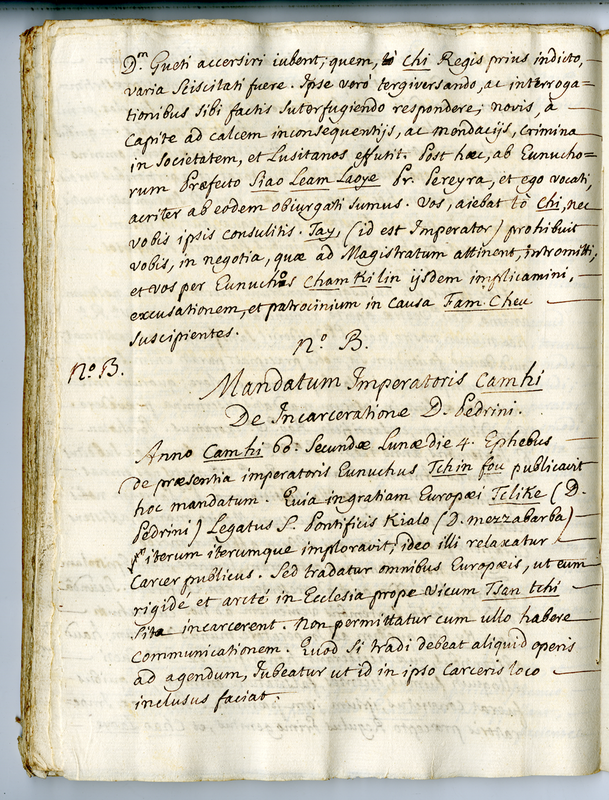 D.m Gueti accersiri iubent; quem, to chi Regis prius indicto,
varia sciscitati fuere. Ipse verò tergiversando, ac interroga-
tionibus sibi factis suterfugiendo respondere; novis, à
Capite ad calcem inconsequentijs, ac mendacijs, Crimina
in Societatem, et Lusitanos effutit. Post hæc, ab Eunucho=
rum Præfecto Siao Leam Laoye Pr. Pereyra, et ego vocati,
acriter ab eodem obiurgati sumus. Vos, aiebat tò Chi, nec
vobis ipsis consulitis. Tay, (id est Imperator) prohibuit
vobis, in negotia, quæ ad Magistratum attinent, intromitti,
et vos per Eunuchos Cham Ki lin ijsdem implicamini,
excusationem, et patrocinium in causa Fam Cheu
suscipientes.
n.o B.
N.o B.
Mandatum Imperatoris Camhi
De Incarceratione D. Pedrini.
Anno Camhi 60: Secundæ Lunæ die 4. Ephebus
de præsentia imperatoris Eunuchus Tchin fou publicavit
hoc mandatum. Quia ingratiam Europæi Telike (D.
Pedrini) Legatus S. Pontificis Kialo (D. mezzabarba)
iterum iterumque imploravit, ideo illi relaxatur
Carcer publicus. Sed tradatur omnibus Europæis, ut eum
rigidè et arctè in Ecclesia prope vicum Tsan tchi
sita incarcerent. Non permittatur cum ullo habere
Communicationem. Quod si tradi debeat aliquid operis
ad agendum, Iubeatur ut id in ipso Carceris loco
inclusus faciat.